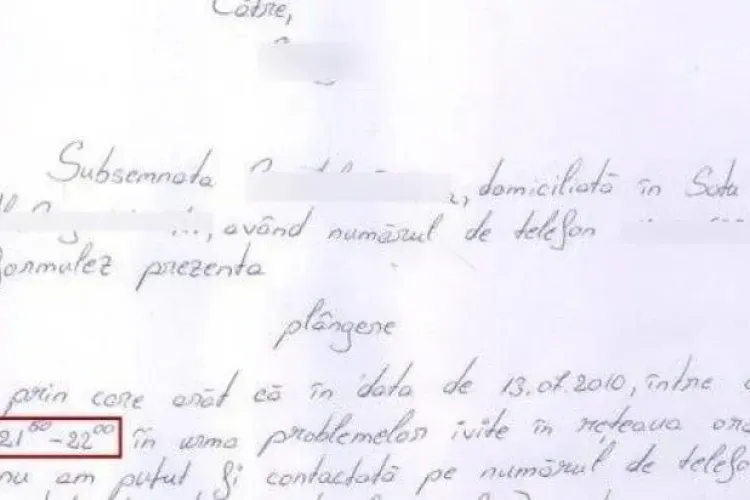 Către,
Subsemnata , domiciliată în Satu
, având numărul de telefon
formulez prezenta
plângere
prin care arăt că în data de 13.07.2010, între
21⁵⁰-22⁰⁰ în urma problemelor ivite în rețeaua
nu am putut fi contactată pe numărul de telefon